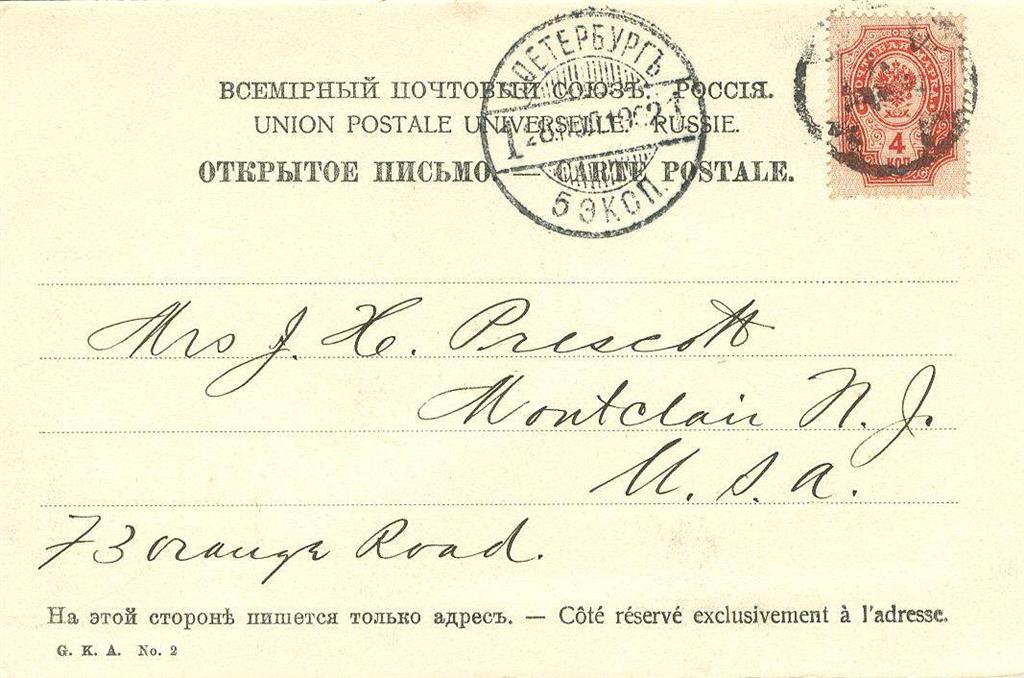 ВСЕМІРНЫЙ ПОЧТОВЫЙ СОЮЗЪ. РОССІЯ.
UNION POSTALE UNIVERSELLE. RUSSIE.
ОТКРЫТОЕ ПИСЬМО. — CARTE POSTALE.
ПЕТЕРБУРГЪ
1 1902 1
5 ЭКСП.
ПОЧТОВАЯ МАРКА.
4
КОП.
Mrs J. H. Prescott
Montclair N. J.
U. S. A.
73 Orange Road.
На этой сторонѣ пишется только адресъ. — Côté réservé exclusivement à l'adresse.
G. K. A. No. 2